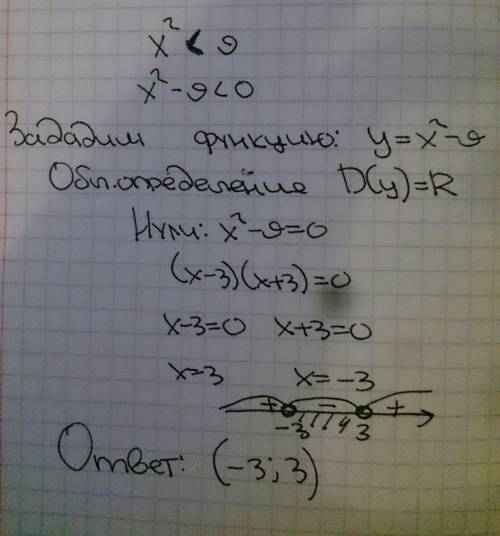 x² < 9
x² - 9 < 0
Зададим функцию: y = x² - 9
Обл. определение D(y) = R
Нули: x² - 9 = 0
(x - 3)(x + 3) = 0
x - 3 = 0 x + 3 = 0
x = 3 x = -3
+ - +
-3 3
Ответ: (-3; 3)